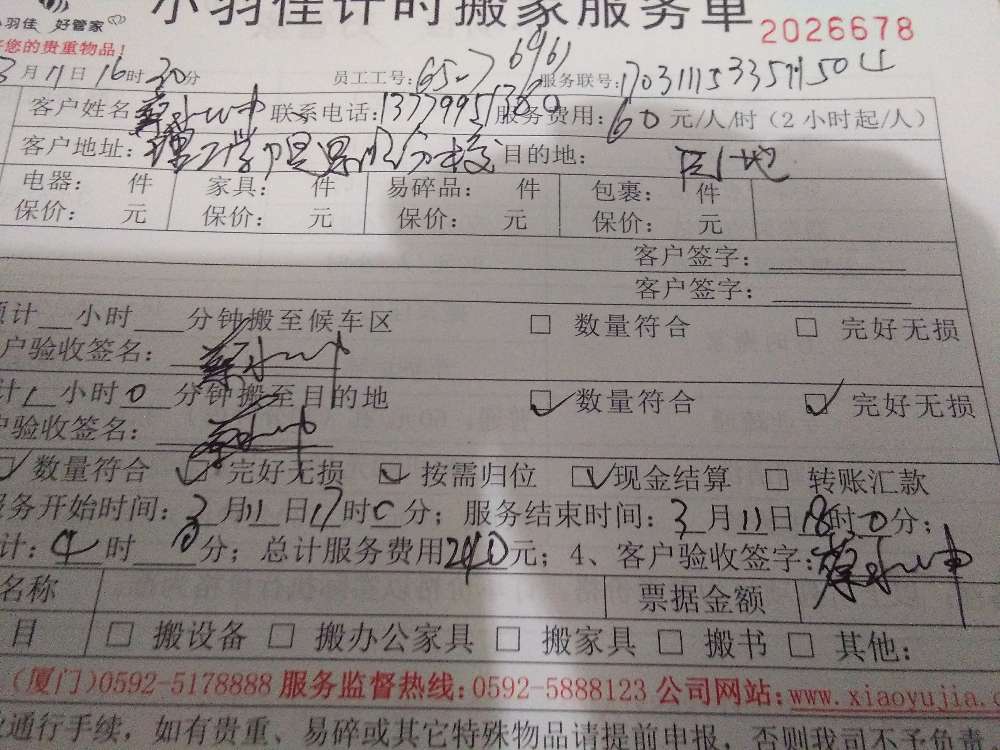 小羽佳计时搬家服务单
小羽佳 好管家 2026678
您的贵重物品!
3月11日16时30分 员工工号: 65-76961 服务联号:
客户姓名 联系电话: 服务费用: 60元/人/时(2小时起/人)
客户地址: 目的地:
电器: 件 家具: 件 易碎品: 件 包裹: 件
保价: 元 保价: 元 保价: 元 保价: 元
客户签字:
客户签字:
预计 小时 分钟搬至候车区 □ 数量符合 □ 完好无损
户验收签名:
计1小时0分钟搬至目的地 ☑ 数量符合 ☑ 完好无损
户验收签名:
☑ 数量符合 ☑ 完好无损 ☑ 按需归位 ☑ 现金结算 □ 转账汇款
服务开始时间: 3月11日17时0分; 服务结束时间: 3月11日18时0分;
计: 4时0分; 总计服务费用240元; 4、客户验收签字:
名称 票据金额
目 □ 搬设备 □ 搬办公家具 □ 搬家具 □ 搬书 □ 其他:
(厦门)0592-5178888 服务监督热线:0592-5888123 公司网站:www.xiaoyujia.c
通行手续, 如有贵重、易碎或其它特殊物品请提前申报, 否则我司不予负责